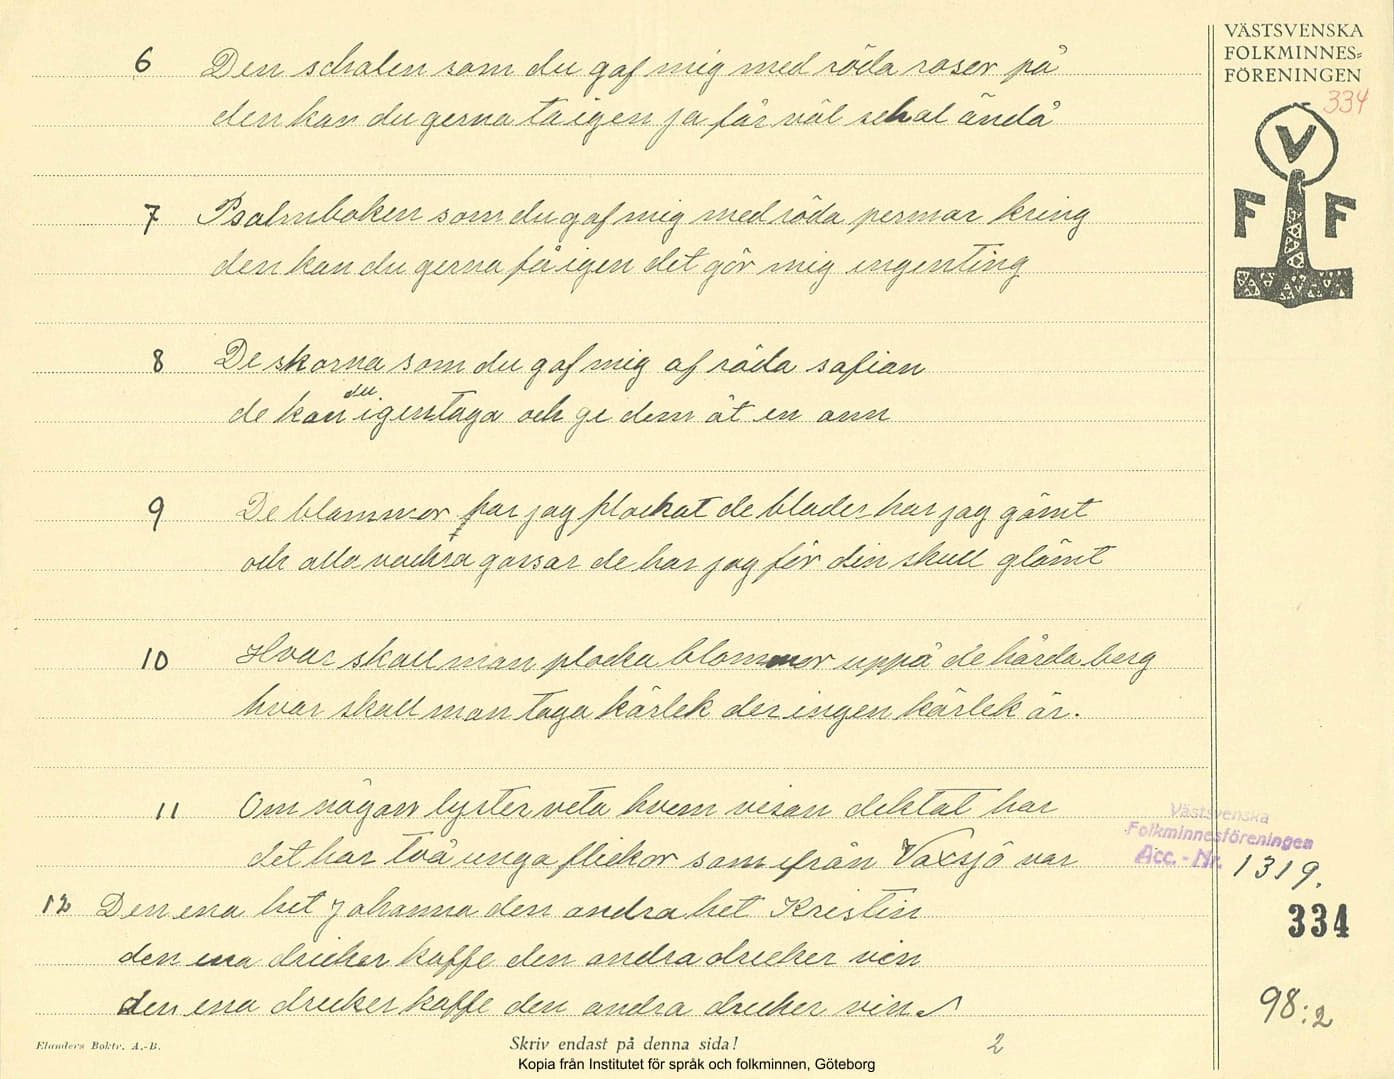 VÄSTSVENSKA
FOLKMINNES-
FÖRENINGEN
334
V
F F
6 Den schalen som du gaf mig med röda roser på
den kan du gerna ta igen ja får väl schal ändå
7 Psalmboken som du gaf mig med röda permar kring
den kan du gerna få igen det gör mig ingenting
8 De skorna som du gaf mig af röda safian
de kan du igentaga och ge dem åt en ann
9 De blommor har jag plockat de blader har jag gömt
och alla vackra gossar de har jag för din skull glömt
10 Hvar skall man plocka blommor uppå de hårda berg
hvar skall man taga kärlek der ingen kärlek är.
11 Om någon lyster veta hvem visan diktat har
det har två unga flickor som ifrån Vaxsjö var
12 Den ena het Johanna den andra het Kristin
den ena dricker kaffe den andra dricker vin
den ena dricker kaffe den andra dricker vin
Västsvenska
Folkminnesföreningen
Acc. - Nr. 1319.
334
98:2
Elanders Boktr. A.-B.
Skriv endast på denna sida!
2
Kopia från Institutet för språk och folkminnen, Göteborg